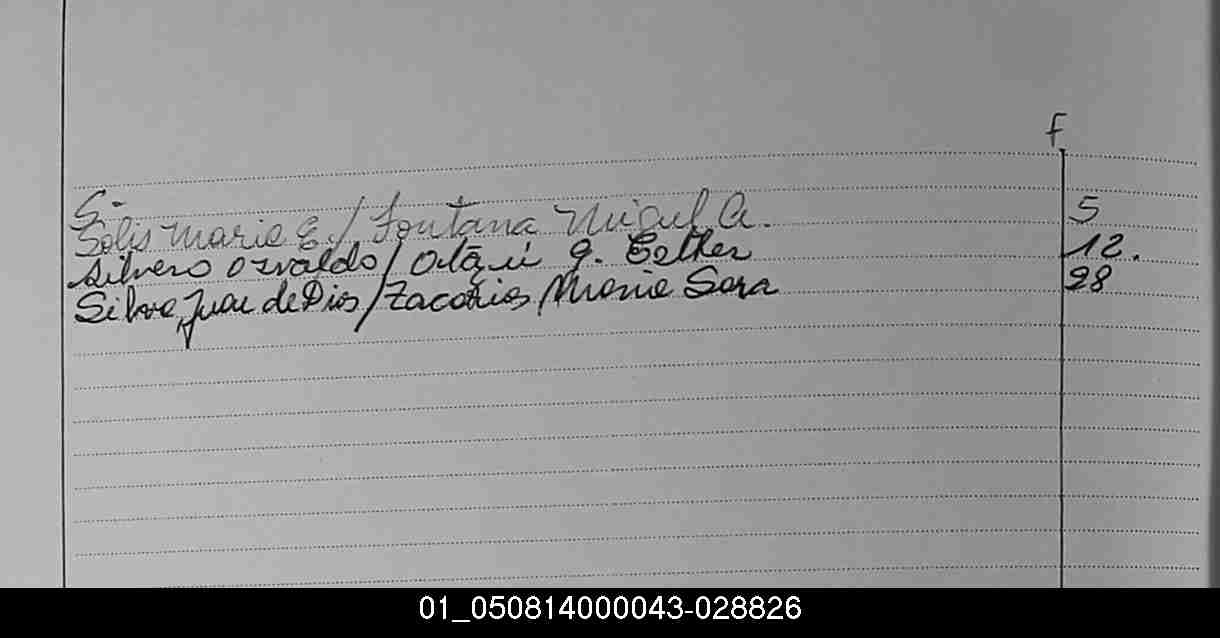 f
S.
Solis Maria E. / Fontana Miguel A. 5
Silvero Osvaldo / G. Esther 12.
Silva, Juan de Dios / Zacarias Maria Sara 28
01_050814000043-028826